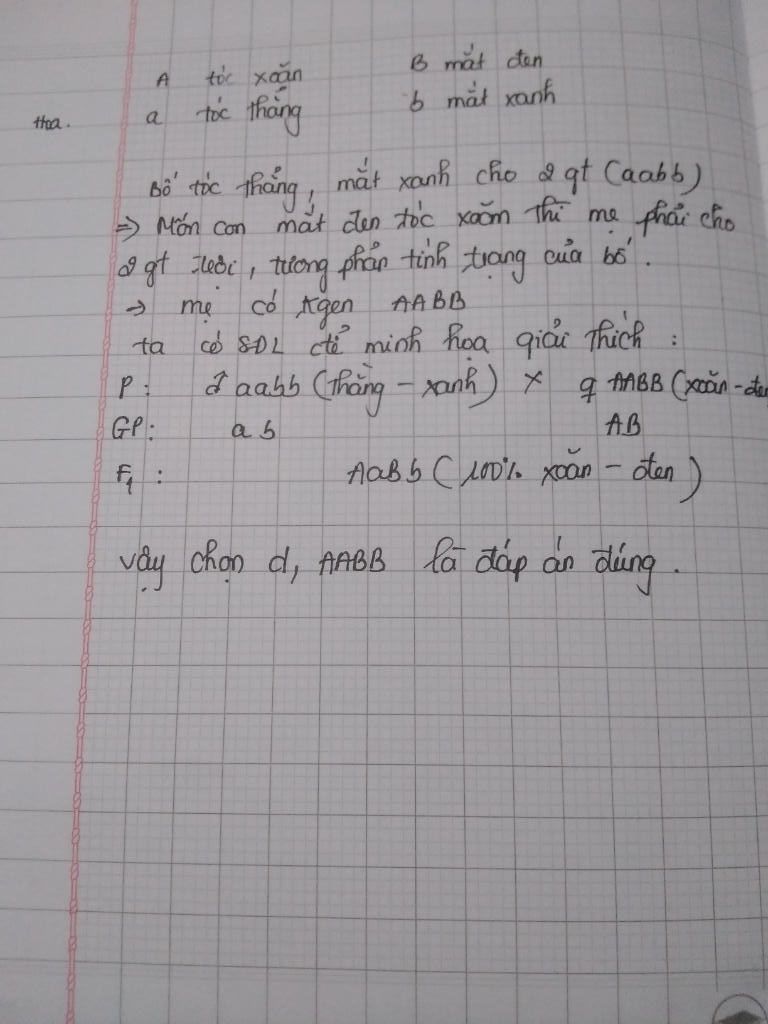 A tóc xoăn B mắt đen
a tóc thẳng b mắt xanh
Bố tóc thẳng, mắt xanh cho gt (aabb)
⇒ Món con mắt đen tóc xoăn thì mẹ phải cho
gt, tương phản tính trạng của bố.
→ mẹ có kgen AABB
ta có SĐL để minh họa giải thích :
P : ♂ aabb (thẳng - xanh) × ♀ AABB (xoăn - đen
GP : ab AB
F1 : AaBb (100% xoăn - đen)
vậy chọn d, AABB là đáp án đúng.